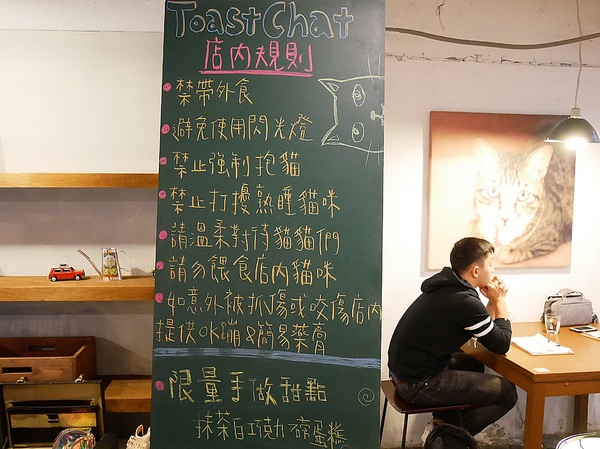 Toast Chat
店內規則
禁帶外食
避免使用閃光燈
禁止強制抱貓
禁止打擾熟睡貓咪
請溫柔對待貓貓們
請勿餵食店內貓咪
如意外被抓傷或咬傷店內
提供OK蹦&簡易藥膏
限量手做甜點
抹茶白巧克力磅蛋糕